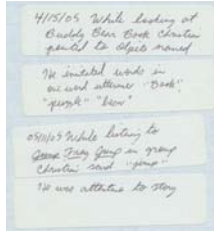 4/15/05 While looking at
Buddy Bear Book Christian
pointed to objects named
He imitated words in
one word utterance "Book"
"puzzle" "bear"
05/11/05 While listening to
Frog Jump in group
Christian said "jump"
He was attentive to story